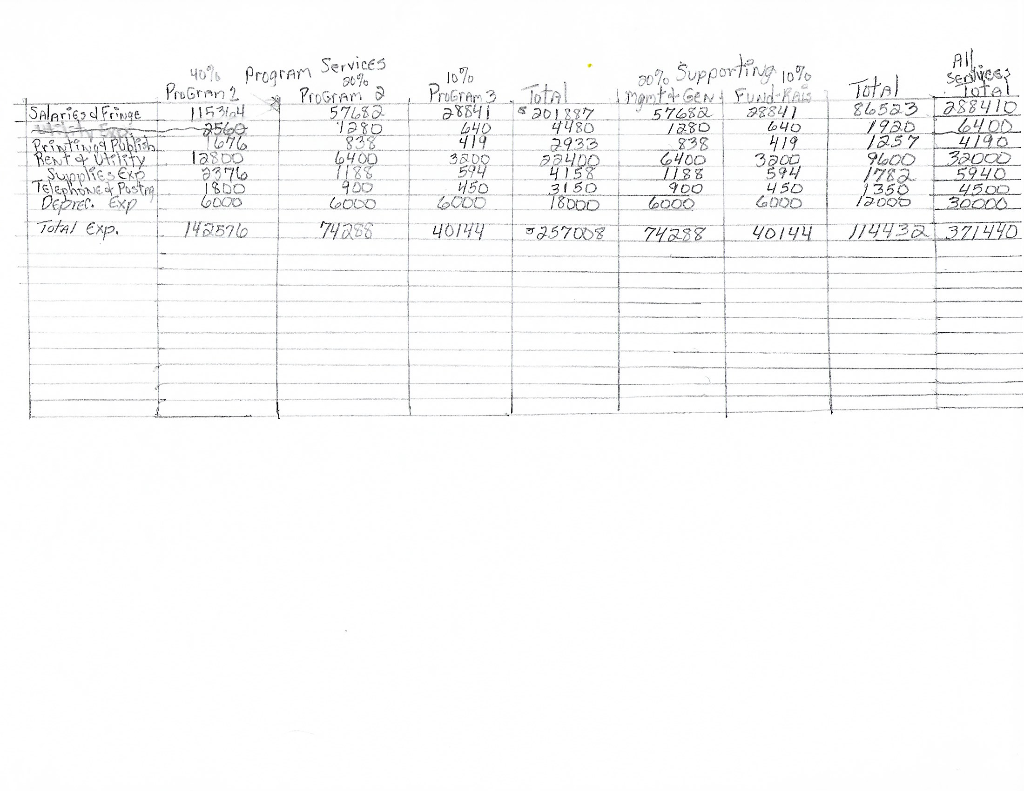 40% Program Services 20% 10% 20% Supporting 10% All Services
Program 1 Program 2 Program 3 Total Mgmt & Gen Fund-Rais Total Total
Salaries & Fringe 115364 57682 28841 $201887 57682 28841 86523 288410
Utility Exp. 2560 1280 640 4480 1280 640 1920 6400
Printing & Publish 1676 838 419 2933 838 419 1257 4190
Rent & Utility 12800 6400 3200 22400 6400 3200 9600 32000
Supplies Exp 2376 1188 594 4158 1188 594 1782 5940
Telephone & Postng 1800 900 450 3150 900 450 1350 4500
Deprec. Exp 6000 6000 6000 18000 6000 6000 12000 30000
Total Exp. 142576 74288 40144 $257008 74288 40144 114432 371440